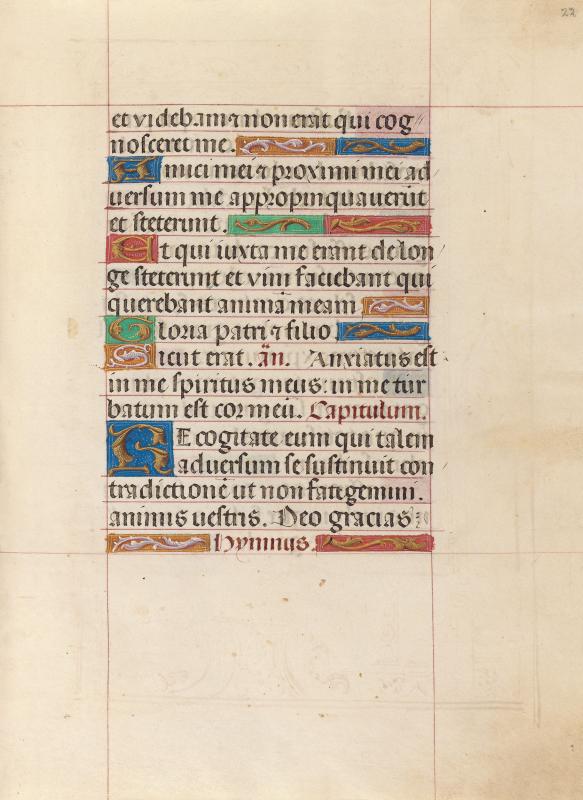 22
et videbam ⁊ non erat qui cog
nosceret me.
Amici mei ⁊ proximi mei ad
uersum me appropinquauerūt
et steterunt.
Et qui iuxta me erant de lon
ge steterunt et vim faciebant qui
querebant animā meam
Gloria patri ⁊ filio.
Sicut erat. añ. Anxiatus est
in me spiritus meus: in me tur
batum est cor meū. Capitulum.
RE cogitate eum qui talem
aduersum se sustinuit con
tradictionē ut non fatigemini.
animis uestris. Deo gracias
Hymnus.